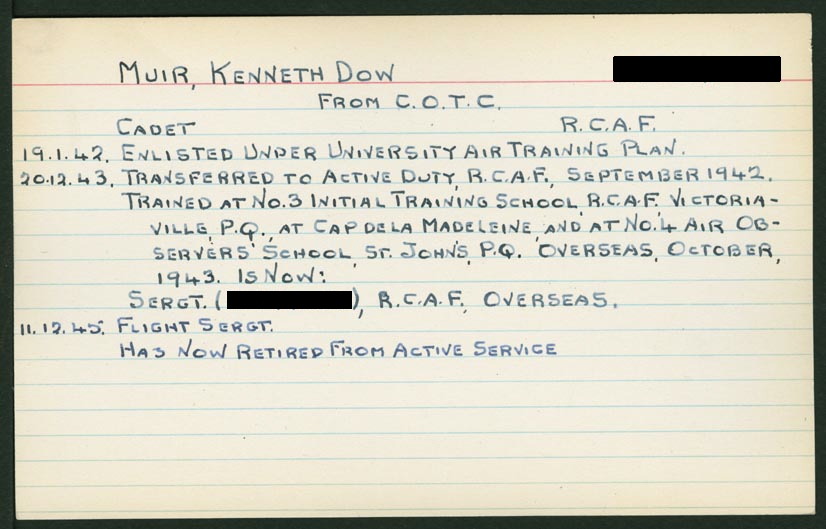 MUIR, KENNETH DOW
FROM C.O.T.C.
CADET R.C.A.F.
19.1.42. ENLISTED UNDER UNIVERSITY AIR TRAINING PLAN.
20.12.43. TRANSFERRED TO ACTIVE DUTY, R.C.A.F., SEPTEMBER 1942.
TRAINED AT NO.3 INITIAL TRAINING SCHOOL, R.C.A.F. VICTORIA-
VILLE, P.Q., AT CAP DE LA MADELEINE AND AT NO.4 AIR OB-
SERVERS' SCHOOL, ST. JOHN'S, P.Q. OVERSEAS, OCTOBER,
1943. IS NOW:
SERGT. ( ), R.C.A.F., OVERSEAS.
11.12.45. FLIGHT SERGT.
HAS NOW RETIRED FROM ACTIVE SERVICE